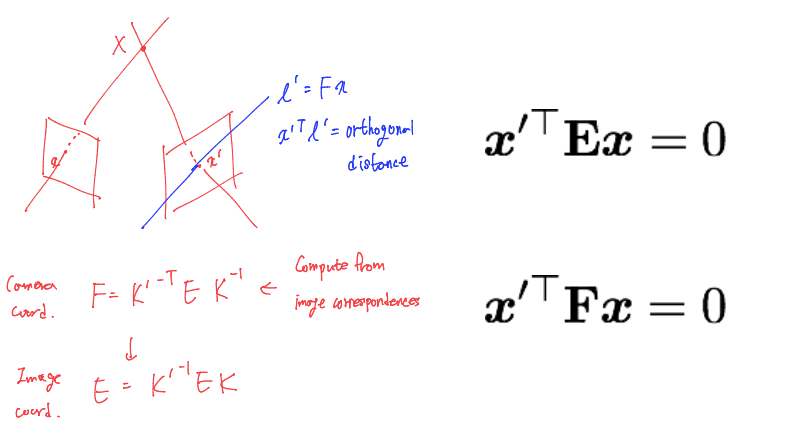 X
l' = Fx
x'ᵀl' = orthogonal
distance
x
x'
x'ᵀEx = 0
Camera
coord.
F = K'⁻ᵀ E K⁻¹ ←
Compute from
image correspondences
↓
x'ᵀFx = 0
Image
coord.
E = K'⁻¹ E K